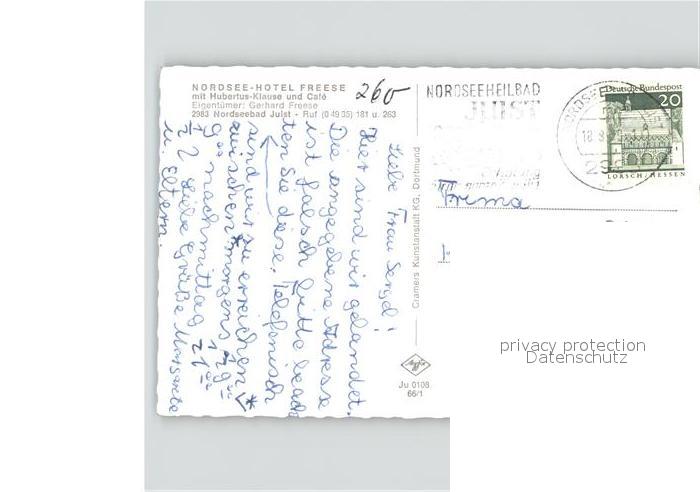 NORDSEE-HOTEL FREESE
mit Hubertus-Klause und Café
Eigentümer: Gerhard Freese
2983 Nordseebad Juist - Ruf (0 49 35) 181 u. 263
260
NORDSEEHEILBAD
JUIST
Deutsche Bundespost
20
LORSCH/HESSEN
Firma
Liebe Frau Sengel!
Hier sind wir gelandet.
Die angegebene Adresse
ist falsch bitte beach
ten Sie diese. Telefonisch
sind wir zu erreichen
zwischen morgens
nachmittag
Liebe Grüße
u. Eltern.
Cramers Kunstanstalt KG, Dortmund
Ju 0108
66/1
privacy protection
Datenschutz